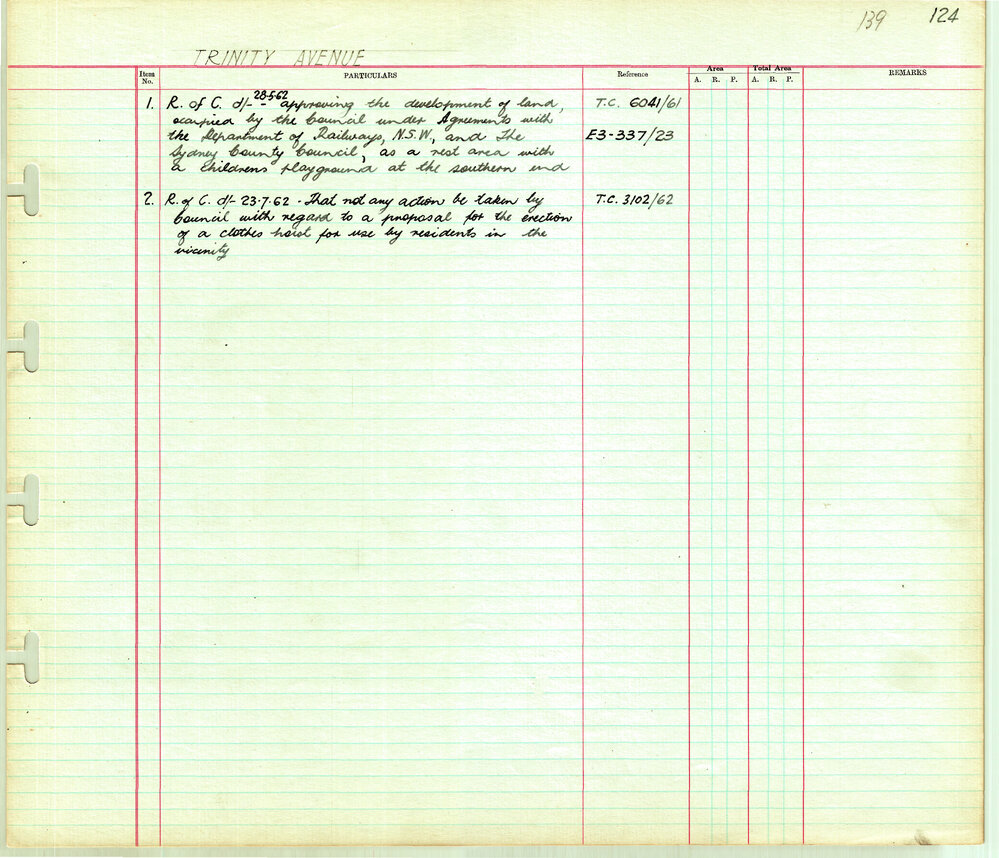 139 124
TRINITY AVENUE
Item No. PARTICULARS Reference Area Total Area REMARKS
A. R. P. A. R. P.
1. R. of C. d/- 28-5-62 - approving the development of land, T.C. 6041/61
occupied by the Council under Agreements with
the Department of Railways, N.S.W., and The E3-337/23
Sydney County Council, as a rest area with
a childrens playground at the southern end
2. R. of C. d/- 23-7-62 - That not any action be taken by T.C. 3102/62
Council with regard to a proposal for the erection
of a clothes hoist for use by residents in the
vicinity